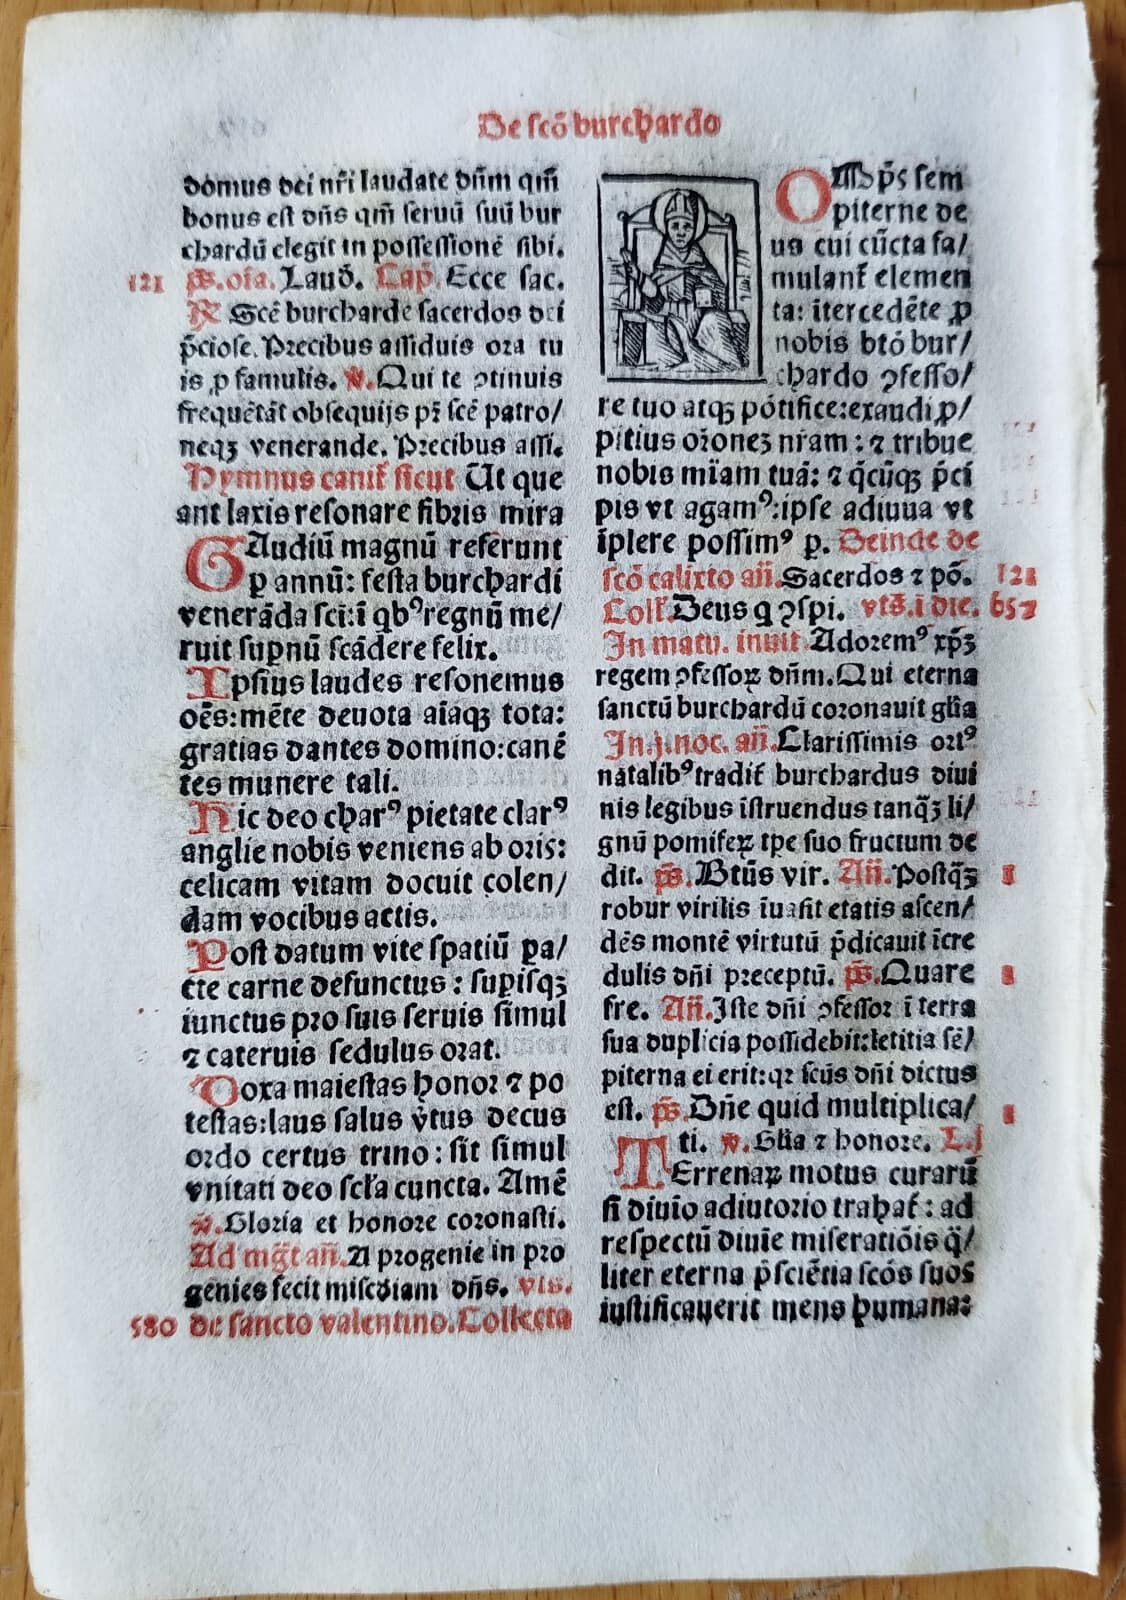 De scō burchardo
domus dei nr̄i laudate dn̄m qm̄
bonus est dn̄s qm̄ seruū suū bur
chardū elegit in possessionē sibi.
121 p̄s. oīa. Laud̄. Cap̄. Ecce sac.
R̄ Scē burcharde sacerdos dei
p̄ciose. Precibus assiduis ora tu
is ꝓ famulis. v̄. Qui te ꝯtinuis
frequētāt obsequijs pr̄ scē patro/
neqꝫ venerande. Precibus assi.
Hymnus canit̄ sicut Ut que
ant laxis resonare fibris mira
GAudiū magnū referunt
ꝑ annū: festa burchardi
venerāda sci: ī qb⁹ regnū me/
ruit supnū scādere felix.
Ipsius laudes resonemus
oēs: mēte deuota aīaqꝫ tota:
gratias dantes domino: canē
tes munere tali.
Hic deo char⁹ pietate clar⁹
anglie nobis veniens ab oris:
celicam vitam docuit colen/
dam vocibus actis.
Post datum vite spatiū pa/
cte carne defunctus: supisqꝫ
iunctus pro suis seruis simul
⁊ cateruis sedulus orat.
Doxa maiestas honor ⁊ po
testas: laus salus v̄tus decus
ordo certus trino: sit simul
vnitati deo scl̄a cuncta. Amē
v̄. Gloria et honore coronasti.
Ad mḡt an̄. A progenie in pro
genies fecit miscdiam dn̄s. vls.
580 de sancto valentino. Collecta
OMp̄s sem
piterne de
us cui cūcta fa/
mulant̄ elemen
ta: itercedēte ꝓ
nobis btō bur/
chardo ꝯfesso/
re tuo atqꝫ pōtifice: exaudi ꝓ/
pitius orōneꝫ nr̄am: ⁊ tribue
nobis mīam tuā: ⁊ q̄cūqꝫ p̄ci
pis vt agam⁹: ipse adiuua vt
īplere possim⁹ ꝑ. Deinde de
scō calixto an̄. Sacerdos ⁊ pō. 121
Coll̄. Deus q ꝯspi. vts̄. ī die. 657
In matu. inuit Adorem⁹ xp̄ꝫ
regem ꝯfessoꝝ dn̄m. Qui eterna
sanctū burchardū coronauit gl̄ia
In. j. noc. an̄. Clarissimis ort⁹
natalib⁹ tradit̄ burchardus diui
nis legibus īstruendus tanq̄ꝫ li/
gnū pomifeꝝ tp̄e suo fructum de
dit. p̄s. Btūs vir. An̄. Postq̄ꝫ 1
robur virilis īuasit etatis ascen/
dēs montē virtutū p̄dicauit īcre
dulis dn̄i preceptū. p̄s. Quare
fre. An̄. Iste dn̄i ꝯfessor ī terra
sua duplicia possidebit: letitia sē/
piterna ei erit: qr scūs dn̄i dictus
est. p̄s. Dn̄e quid multiplica/
ti. v̄. Gl̄ia ⁊ honore. L. j
TErrenaꝝ motus curarū
si diuīo adiutorio trahat̄: ad
respectū diuīe miseratiōis q̄/
liter eterna p̄sciētia scōs suos
iustificauerit mens humana: